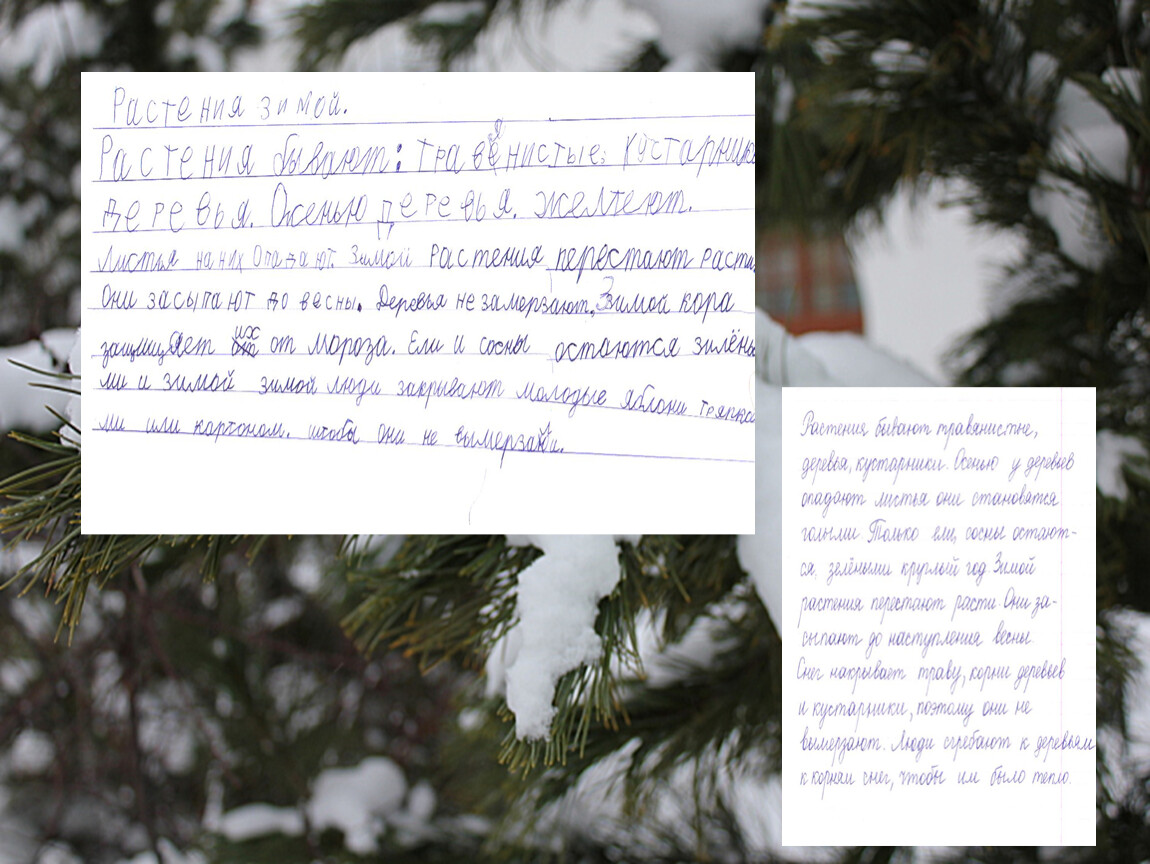 Растения зимой.
Растения бывают: травянистые, кустарники
деревья. Осенью деревья. желтеют.
Листья на них опадают. Зимой растения перестают расти.
Они засыпают до весны. Деревья не замерзают. Зимой кора
защищяет их от мороза. Ели и сосны остаются зилёны
ми и зимой зимой люди закрывают молодые яблони тряпка
ми или картоном. чтобы они не вымерзли.
Растения бывают травянистые,
деревья, кустарники. Осенью у деревьев
опадают листья они становятся
голыми. Только ели, сосны остают-
ся, зелёными круглый год. Зимой
растения перестают расти. Они за-
сыпают до наступления весны.
Снег накрывает траву, корни деревьев
и кустарники, поэтому они не
вымерзают. Люди сгребают к деревьям
к корням снег, чтобы им было тепло.